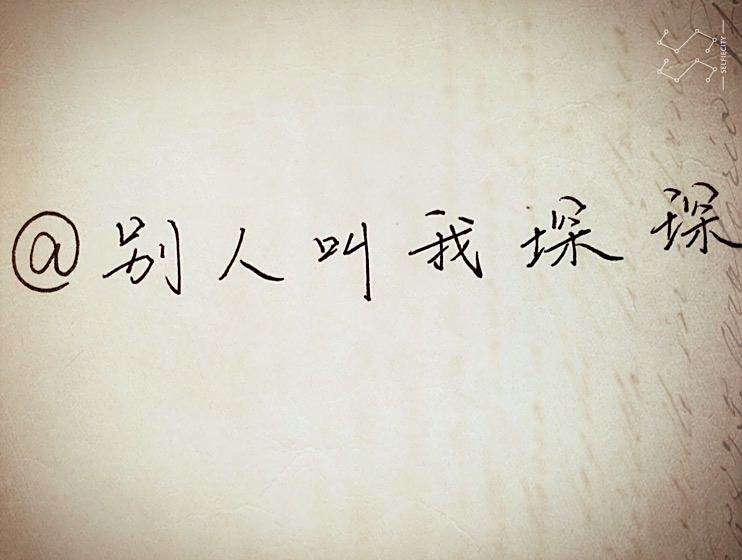 @别人叫我琛琛
SELFIECITY